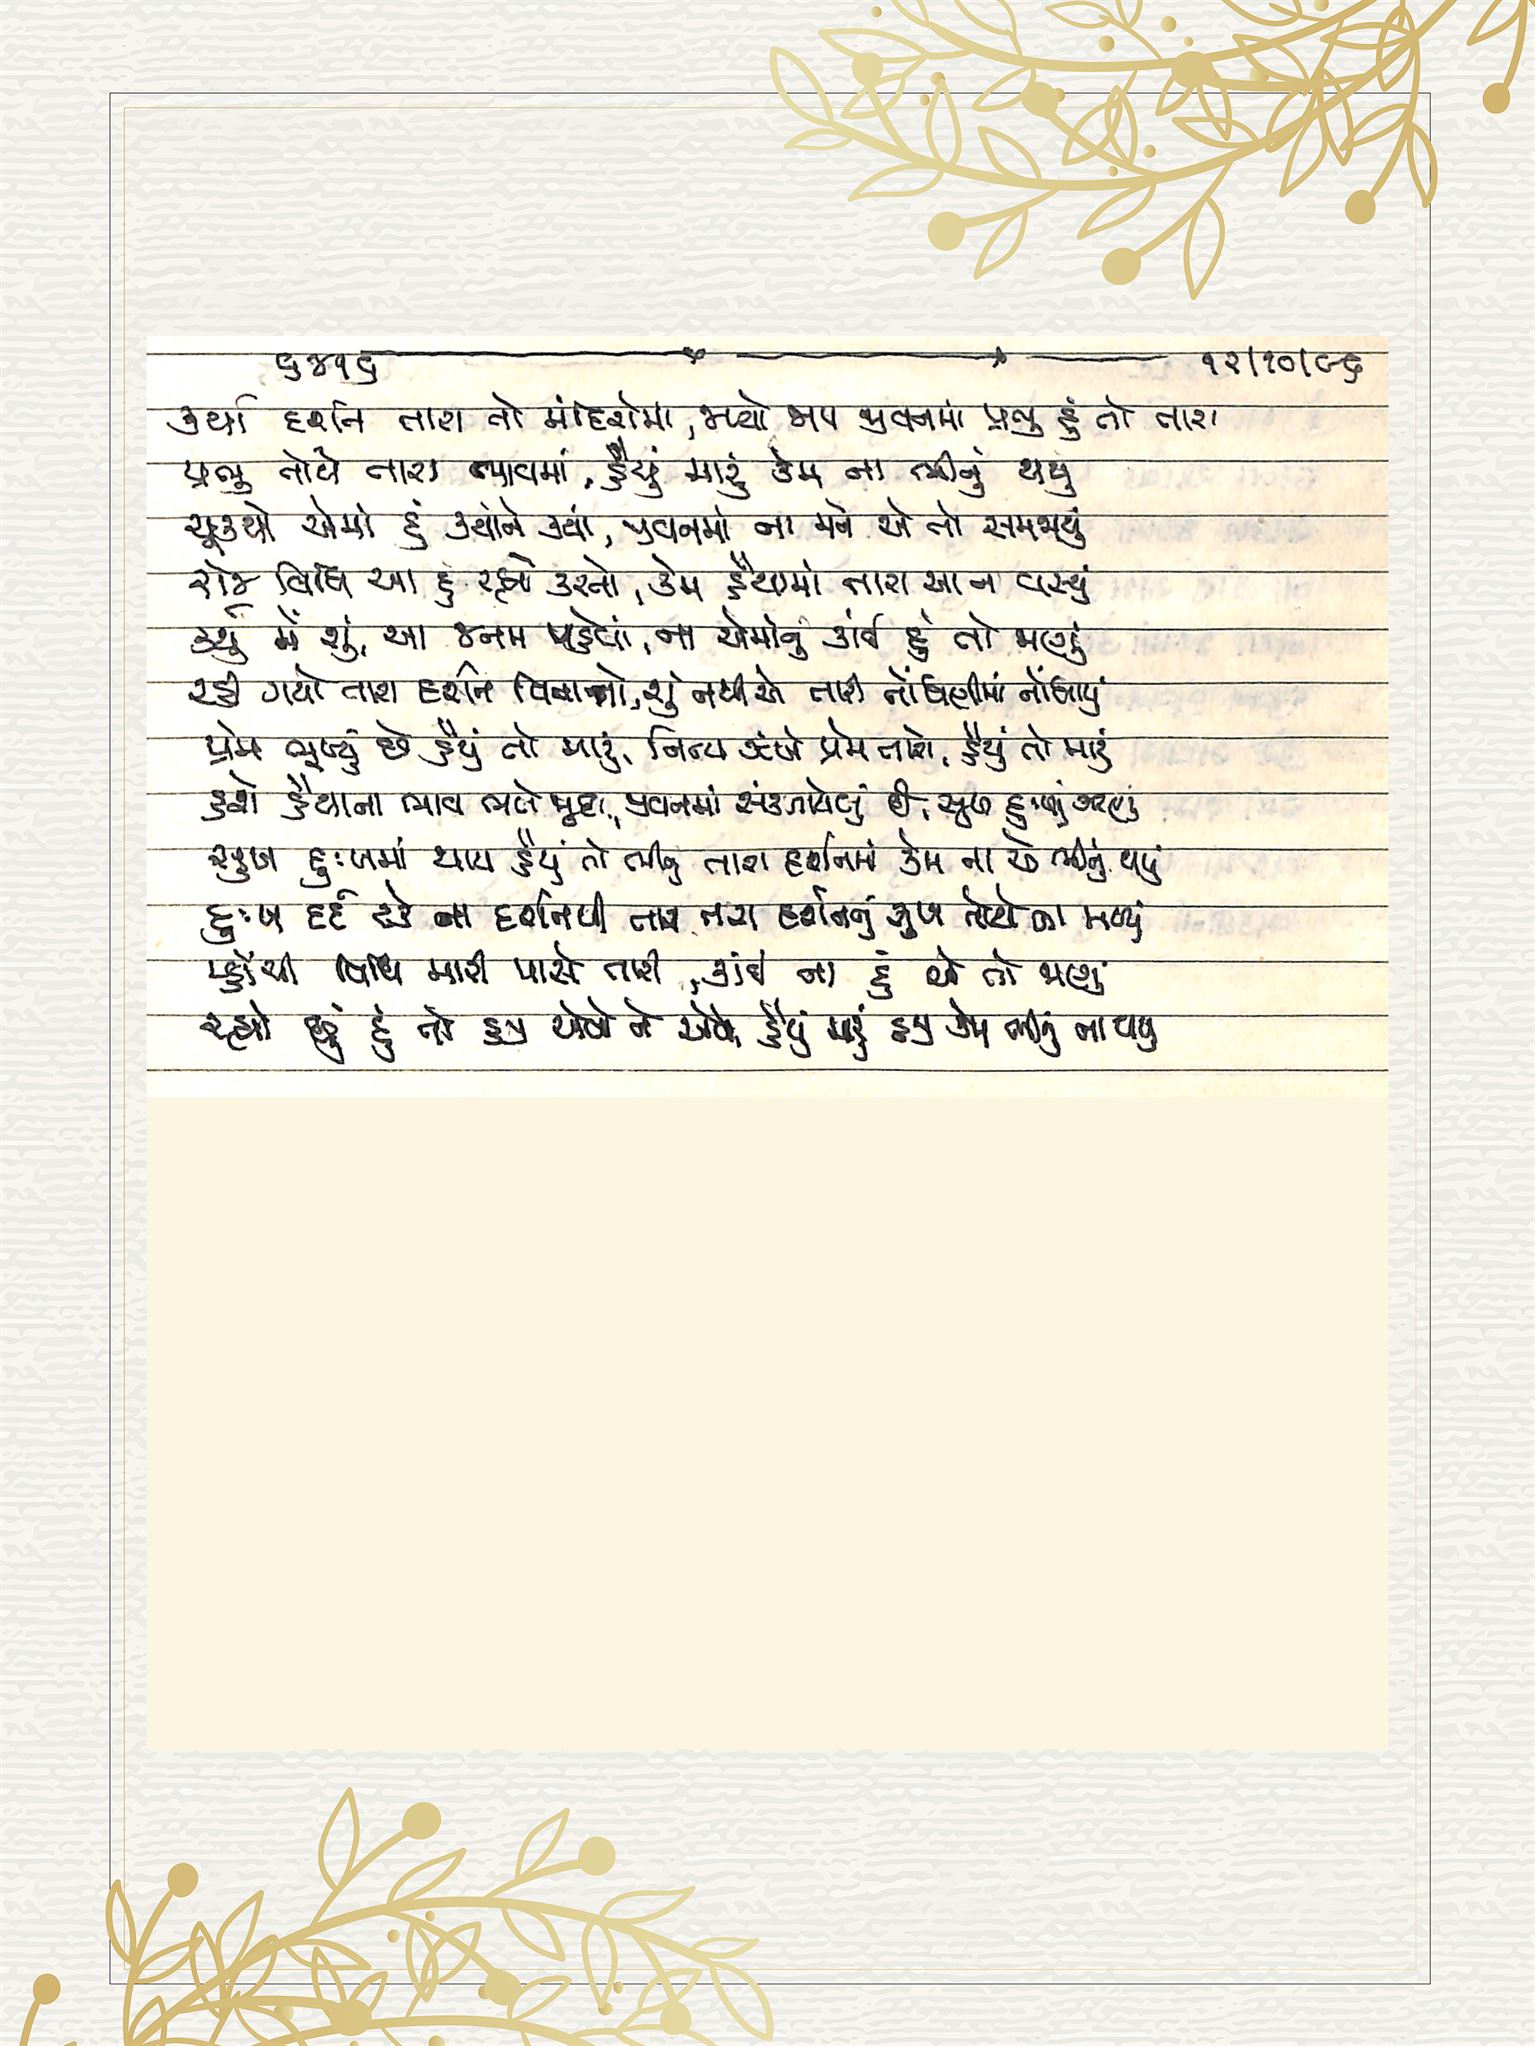 ૬૪૧૬ ૧૨/૧૦/૯૬
કર્યા દર્શન તારા તો મંદિરોમાં, જપ્યો જાપ જીવનમાં પ્રભુ હું તો તારા
પ્રભુ તોયે તારા ભાવમાં, હૈયું મારું કેમ ના ભીનું થયું
ચૂકયો એમાં હું કયાંને કયાં, જીવનમાં ના મને એ તો સમજાયું
રોજ વિધિ આ હું રહ્યો કરતો, કેમ હૈયામાં તારા આ ન વસ્યું
કર્યું મેં શું, આ જનમ પહેલાં, ના એમાંનું કાંઈ હું તો જાણું
રહી ગયો તારા દર્શન વિનાનો, શું નથી એ તારી નોંધણીમાં નોંધાયું
પ્રેમ ભૂખ્યું છે હૈયું તો મારું, નિત્ય ઝંખે પ્રેમ તારો, હૈયું તો મારું
હશે હૈયાના ભાવ ભલે જુદા, જીવનમાં સંકળાયેલું છે, સુખ દુઃખનું ઝરણું
સુખ દુઃખમાં થાય હૈયું તો ભીનું તારા દર્શનમાં કેમ ના એ ભીનું થયું
દુઃખ દર્દ ટકે ના દર્શનથી તારા, તારા દર્શનનું સુખ તોયે ના મળ્યું
પહોંચી વિધિ મારી પાસે તારી, કાંઈ ના હું એ તો જાણું
રહ્યો છું હું તો હજી એવો ને એવો, હૈયું મારું હજી કેમ ભીનું ના થયું